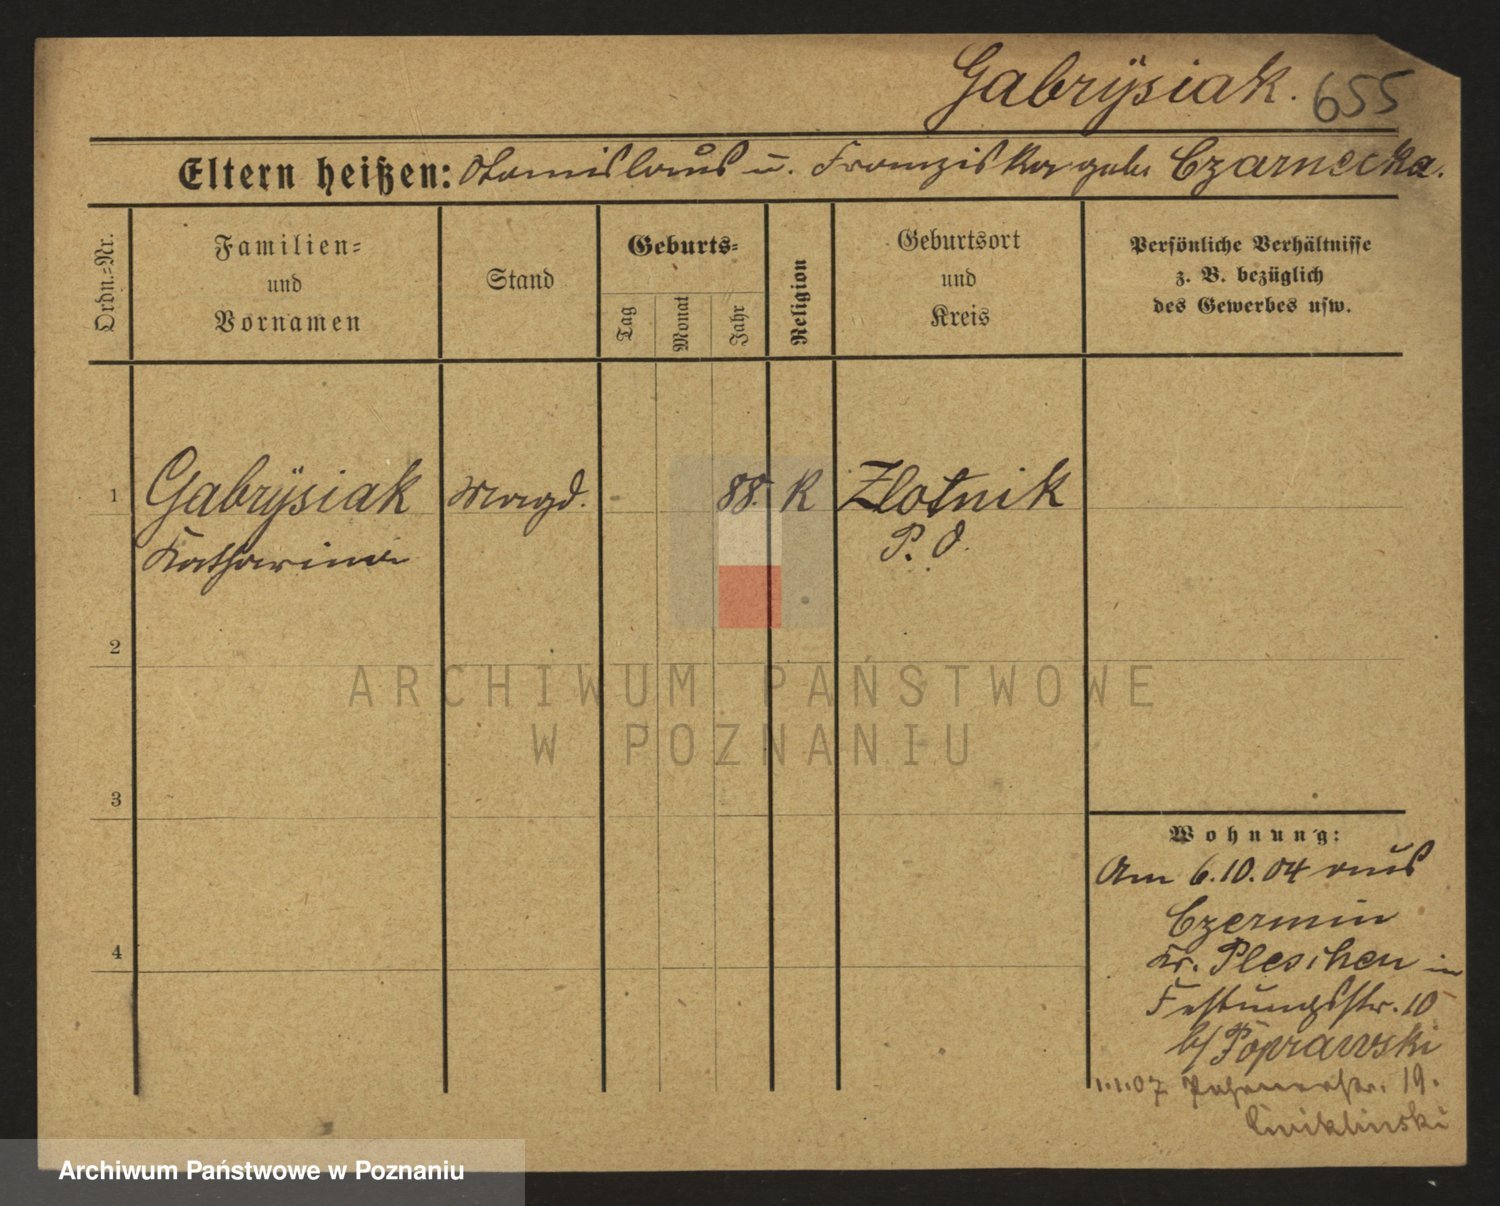 Gabrÿsiak. 655
Eltern heißen: Stanislaus u. Franziska geb. Czarnecka.
Ordn.=Nr.
Familien=
und
Vornamen
Stand
Geburts=
Tag
Monat
Jahr
Religion
Geburtsort
und
Kreis
Persönliche Verhältnisse
z. B. bezüglich
des Gewerbes usw.
1 Gabrÿsiak Magd. 88. K Zlotnik
Katharina P. O.
2
3
4
Wohnung:
Am 6.10.04 aus
Czermin
Kr. Pleschen in
Festungsstr. 10
b/ Poprawski
1.1.07 19.
ARCHIWUM PAŃSTWOWE
W POZNANIU
Archiwum Państwowe w Poznaniu